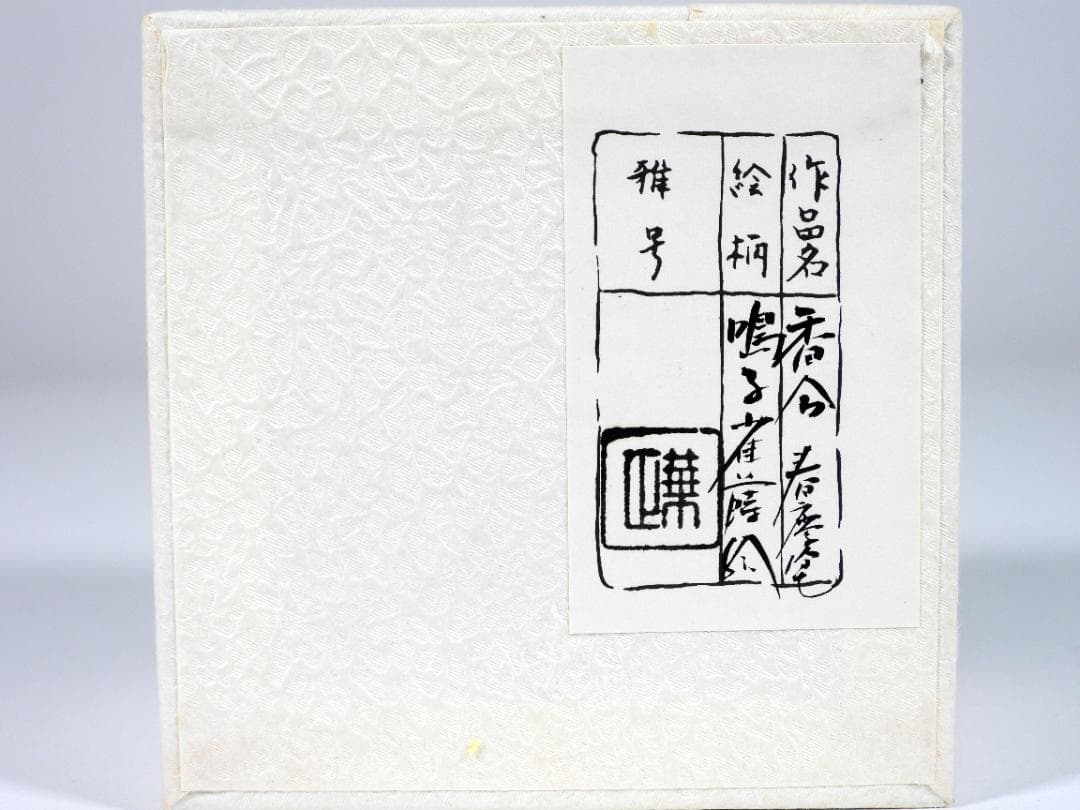 作品名 香合
絵柄 鳴子雀蒔絵
雅号